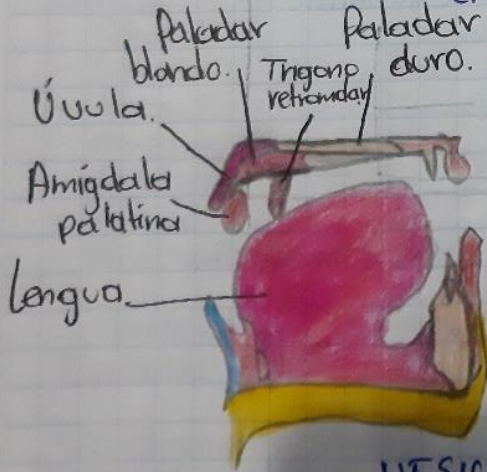 Paladar
blando.
Paladar
duro.
Trigono
retromolar
Úvula.
Amígdala
palatina
Lengua